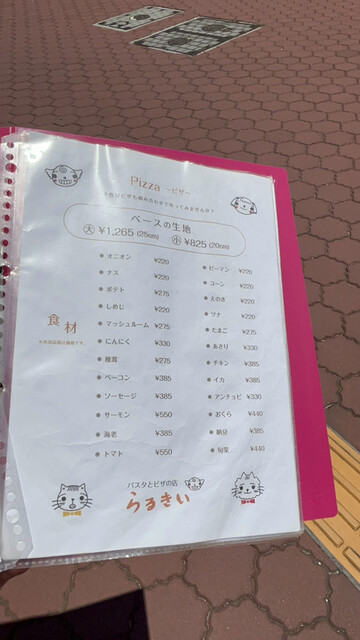 Pizza ～ピザ～
手作りピザを組み合わせで作ってみませんか？
ベースの生地
大 ¥1,265 (25cm) 小 ¥825 (20cm)
食材
オニオン ¥220
ナス ¥220
ポテト ¥275
しめじ ¥220
マッシュルーム ¥275
にんにく ¥330
椎茸 ¥275
ベーコン ¥385
ソーセージ ¥385
サーモン ¥550
海老 ¥385
トマト ¥550
ピーマン ¥220
コーン ¥220
えのき ¥220
ツナ ¥220
たまご ¥275
あさり ¥330
チキン ¥385
イカ ¥385
アンチョビ ¥330
おくら ¥440
納豆 ¥385
旬菜 ¥440
パスタとピザの店
らるきい